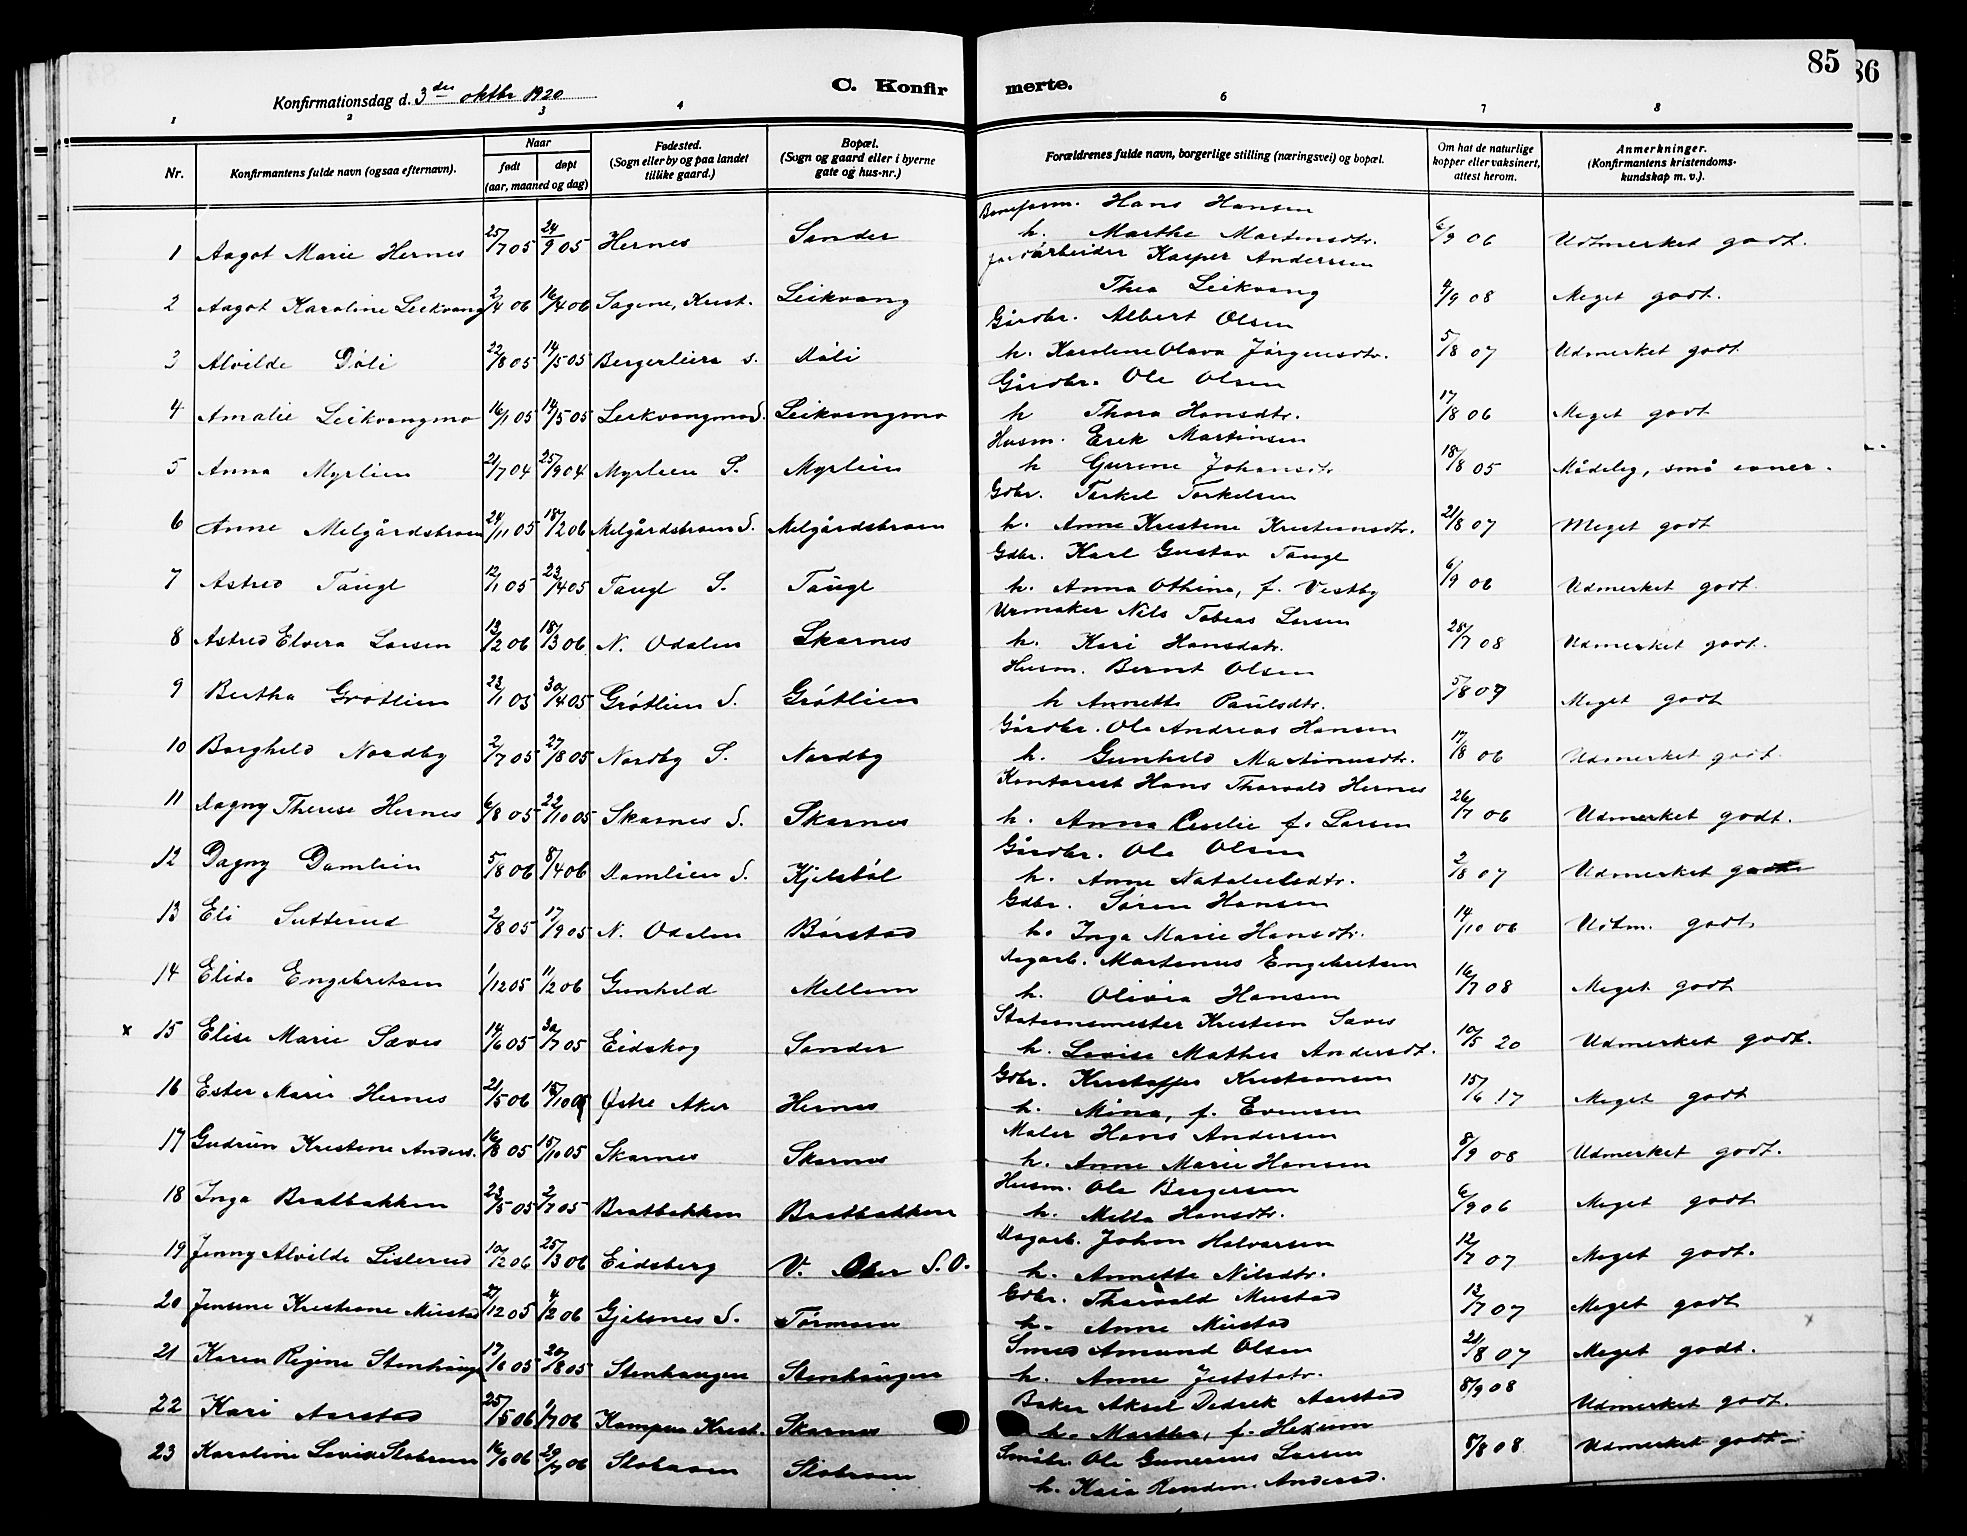 85
86
Konfirmationsdag d. 3 die oktbr 1920
C. Konfirmerte.
1 2 3 4 6 7 8
Nr.
Konfirmantens fulde navn (ogsaa efternavn).
Naar
født døpt
(aar, maaned og dag)
Fødested.
(Sogn eller by og paa landet
tillike gaard.)
Bopæl.
(Sogn og gaard eller i byerne
gate og hus-nr.)
Forældrenes fulde navn, borgerlige stilling (næringsvei) og bopæl.
Om hat de naturlige
kopper eller vaksinert,
attest herom.
Anmerkninger.
(Konfirmantens kristendoms-
kundskap m. v.).
Hans Hansen
1 Aagot Marie Hernes 25/7 05 24/9 05 Hernes Sander h. Marthe Martensdtr. 6/9 06 Udmerket godt.
arbeider Kasper Andersen
2 Aagot Karoline Leikvang 2/4 06 16/4 06 Sagene, Krist. Leikvang Thea Leikvang 4/9 08 Meget godt.
Gårdbr. Albert Olsen
3 Alvilde Døli 22/8 05 14/5 05 Bergerleira S. Døli h. Karoline Olava Jörgensdtr. 5/8 07 Udmerket godt
Gårdbr. Ole Olsen
4 Amalie Leikvangmo 16/1 05 14/5 05 Leikvangmo S. Leikvangmo h Thora Hansdtr. 17/8 06 Meget godt
Husm. Erik Martinsen
5 Anna Myrlien 21/7 04 25/9 04 Myrlien S. Myrlien h Gurine Johansdtr 18/8 05 Mådelig, små evner.
Gdbr. Torkel Torkelsen
6 Anne Melgårdsbroen 24/11 05 18/2 06 Melgårdsbroen S. Melgårdsbroen h. Anne Kristine Kristiansdtr. 21/8 07 Meget godt
Gdbr. Karl Gustav Taugl
7 Astrid Taugl 12/1 05 23/4 05 Taugl S. Taugl h. Anna Othina, f. Vestby 6/9 06 Udmerket godt.
Urmaker Nils Tobias Larsen
8 Astrid Elvira Larsen 13/2 06 18/3 06 N. Odalen Skarnes h. Kari Hansdatr. 28/7 08 Udmerket godt.
Husm. Bernt Olsen
9 Bertha Grøtlien 23/1 05 30/4 05 Grøtlien S. Grøtlien h Annette Paulsdtr. 5/8 07 Meget godt
Gårdbr. Ole Andreas Hansen
10 Borghild Nordby 2/7 05 27/8 05 Nordby S. Nordby h. Gunhild Martinusdtr. 17/8 06 Udmerket godt.
Kontorist Hans Thorvald Hernes
11 Dagny Therese Hernes 6/8 05 22/10 05 Skarnes S. Skarnes h. Anna Cecilie f. Larsen 26/7 06 Udmerket godt.
Gårdbr. Ole Olsen
12 Dagny Damlien 5/8 06 8/4 06 Damlien S. Kjelsbøl h. Anne Nataliusdtr. 2/8 07 Udmerket godt
Gdbr. Søren Hansen
13 Eli Sætterud 2/8 05 17/9 05 N. Odalen Børstad h. Inga Marie Hansdtr. 14/10 06 Udtm. godt
Dagarb. Martinus Engebretsen
14 Elida Engebretsen 1/12 05 11/2 06 Gunhild Mellem h. Olivia Hansen 16/7 08 Meget godt
Stationsmester Kristian Sæves
x 15 Elise Marie Sæves 14/6 05 30/7 05 Eidskog Sander h. Lovise Mathea Andersdt. 10/5 20 Udmerket godt.
Gdbr. Kristoffer Kristiansen
16 Ester Marie Hernes 21/5 06 15/10 05 Østre Aker Hernes h. Mina, f. Evensen 15/6 17 Meget godt
Maler Hans Andersen
17 Gudrun Kristine Anders. 16/8 05 15/10 05 Skarnes Skarnes h. Anne Marie Hansen 8/9 08 Udmerket godt.
Husm. Ole Bergersen
18 Inga Bratbakken 23/5 05 2/7 05 Bratbakken Bratbakken h. Milla Hansdtr. 6/9 06 Meget godt
Dagarb. Johan Halvorsen
19 Jenny Alvilde Sislerud 10/2 06 25/3 06 Eidsberg V. S.O. h. Annette Nilsdtr. 12/7 07 Meget godt.
Gdbr. Thorvald Mustad
20 Jensine Kristiane Mustad 27/12 05 4/2 06 Gjelsnes S. Tormoen h. Anne Mustad 12/7 07 Meget godt
x
Smed Amund Olsen
21 Karen Regine Stenhaugen 17/6 05 20/8 05 Stenhaugen Stenhaugen h. Anne 21/8 07 Meget godt.
Baker Aksel Didrik Aarstad
22 Kari Aarstad 25/5 06 1/7 06 Kampen Krist. Skarnes h. Martha, f. Hexum 8/9 08 Udmerket godt.
Småbr. Ole Gunerius Larsen
23 Karoline Lovise Slobraaen 16/6 06 29/7 06 h. Kaia Andersd. 8/8 08 Udmerket godt